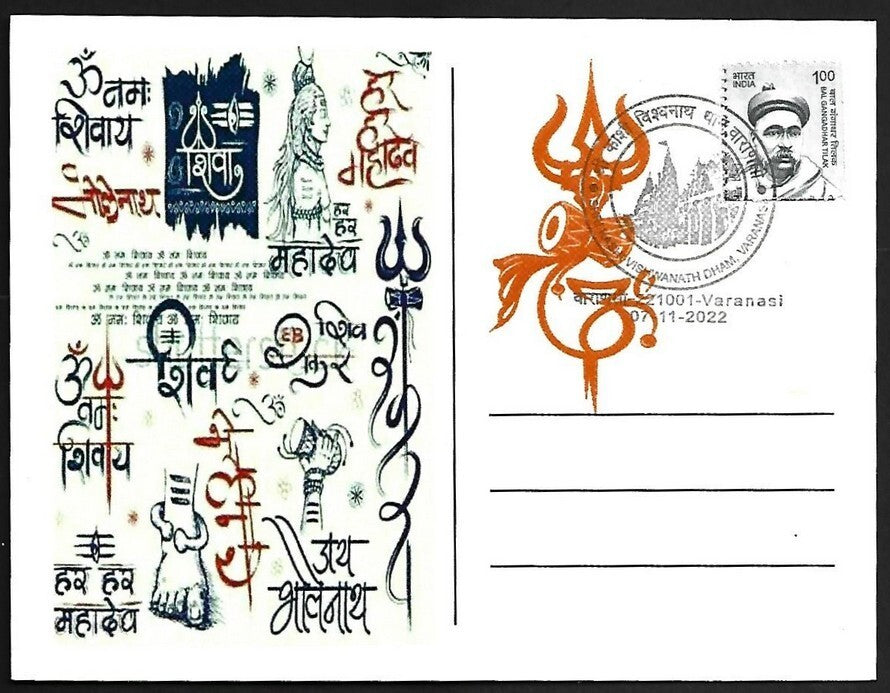 ॐ नमः
शिवाय
शिवा
हर
हर
महादेव
भोलेनाथ
हर
हर
महादेव
ॐ नमः शिवाय ॐ नमः शिवाय
शिव
शिव
ॐ
नमः
शिवाय
हर हर
महादेव
जय
भोलेनाथ
भारत
INDIA
1.00
BAL GANGADHAR TILAK
बाल गंगाधर तिलक
काशी विश्वनाथ धाम वाराणसी
VISHWANATH DHAM, VARANASI
वाराणसी-221001-Varanasi
07-11-2022